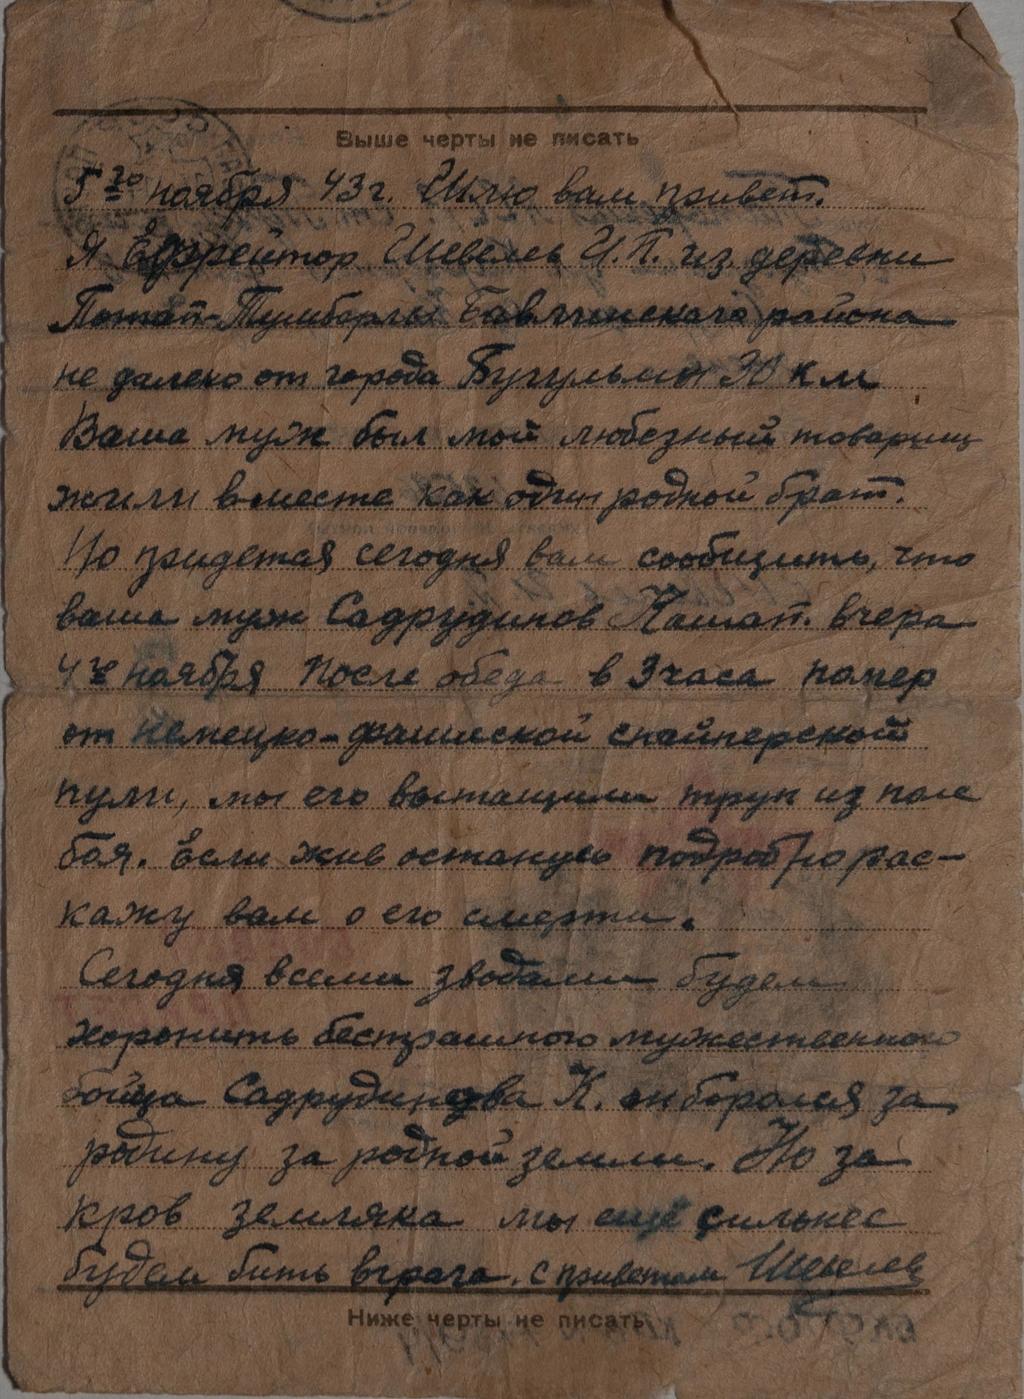 Выше черты не писать
5го ноября 43 г. Шлю вам привет.
Я Ефрейтор Шевелев И.П. из деревни
Потап-Тумбарлы Бавлинского района
не далеко от города Бугульма 30 км
Ваша муж был мой любезный товарищ
жили вместе как один родной брат.
Но придется сегодня вам сообщить, что
ваша муж Садрудинов Кашап. вчера
4го ноября после обеда в 3 часа помер
от немецко-фашиской снайперской
пули, мы его вытащили труп из поле
боя. Если жив останусь подробно рас-
кажу вам о его смерти.
Сегодня всеми зводами будем
хоронить бестрашного мужественного
бойца Садрудинова К. он боролся за
родину за родной земли. Но за
кров земляка мы ещё сильнее
будем бить врага. с приветом Шевелев
Ниже черты не писать